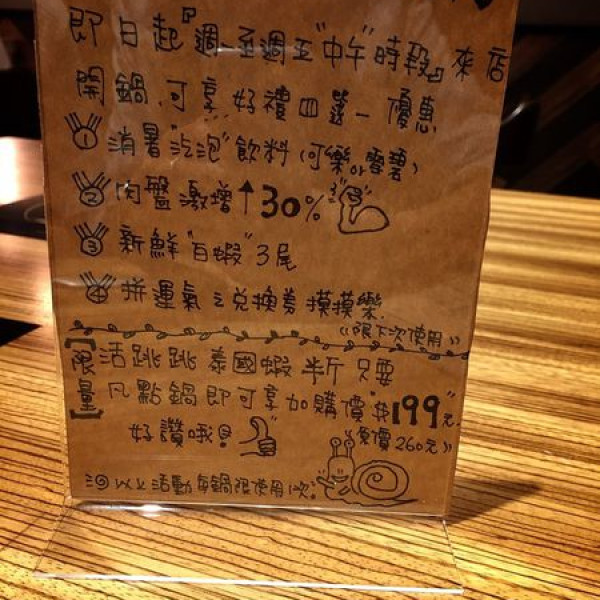 即日起『週一至週五"中午"時段』來店
開鍋.可享 好禮四選一 優惠
1 消暑"汽泡"飲料(可樂or雪碧)
2 肉盤激增↑30%
3 新鮮"白蝦"3尾
4 拼運氣之兌換券摸摸樂.
《限下次使用》
【限量】活跳跳 泰國蝦 半斤 只要
凡點鍋即可享加購價"$199"元.
好讚哦! 《原價260元》
以上活動每鍋限使用1次.